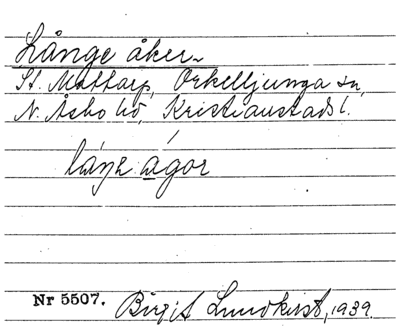 Långe åker
St. Mattarp, Örkelljunga sn,
N. Åsbo hd, Kristianstads l.
Nr 5507. Birgit Lundkvist, 1939.